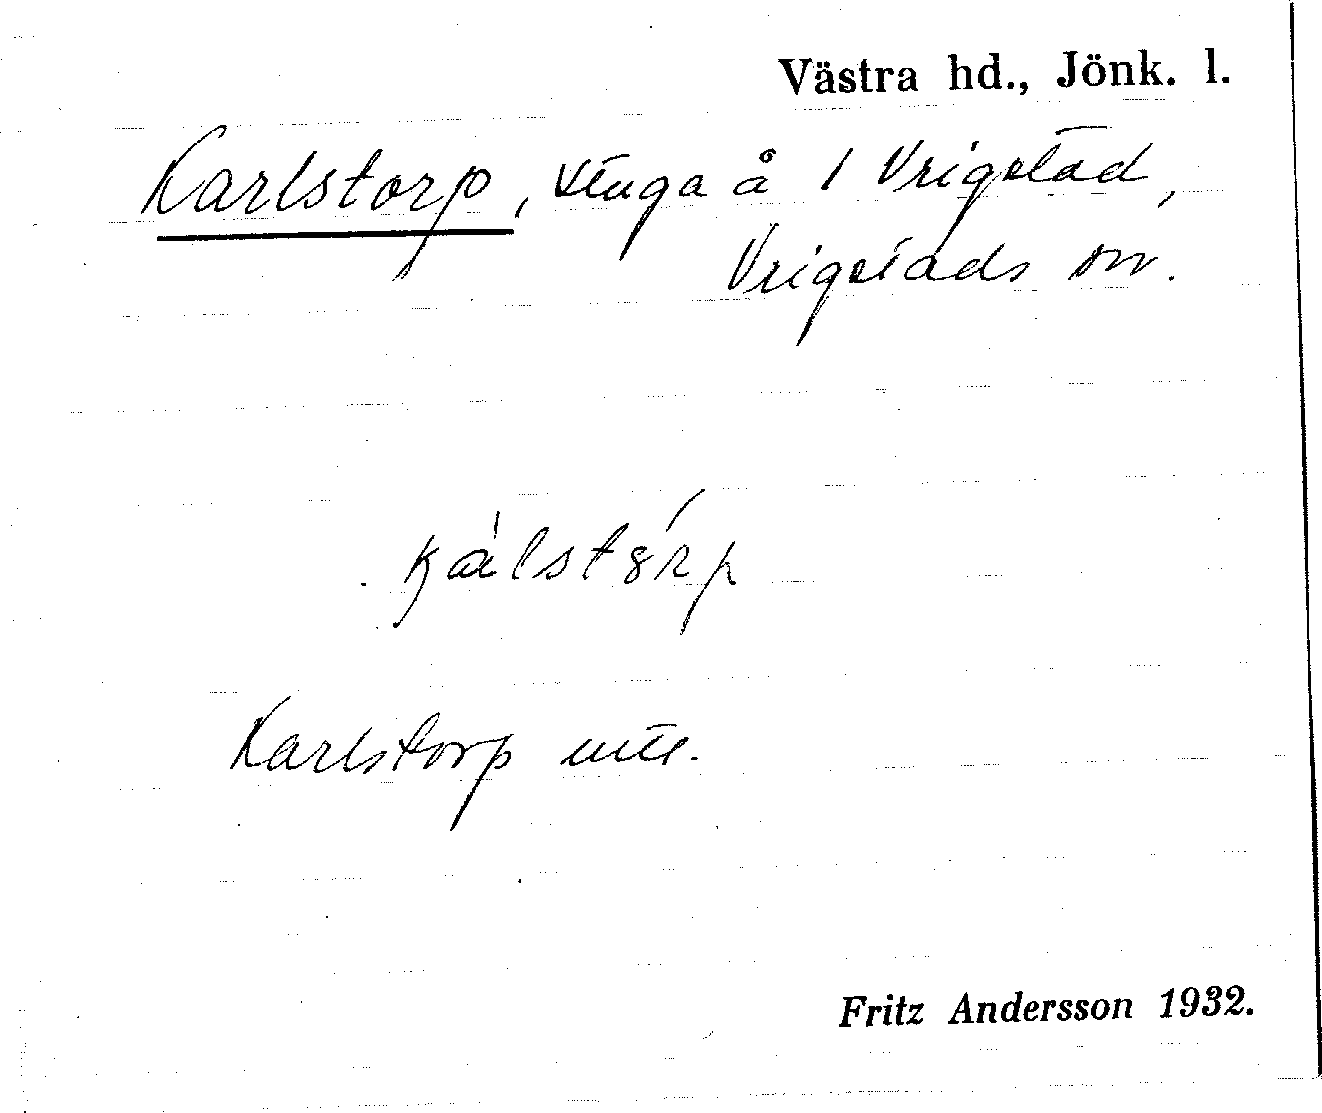 Västra hd., Jönk. l.
Karlstorp, stuga å 1 Vrigstad,
Vrigstads sn.
Karlstorp
Fritz Andersson 1932.